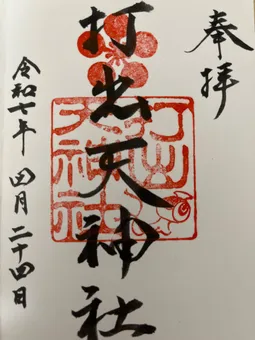 奉拝
打出天神社
打出天神社
令和七年 四月 二十四日